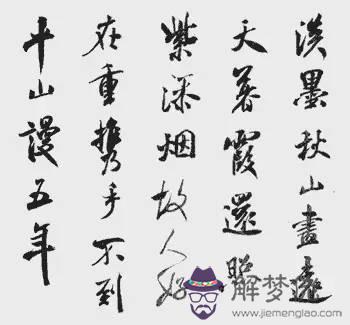 淡墨秋山畫遠
天暮霞還照
紫添烟故人好
在重携手不到
平山謾五年
解梦佬
www.jiemenglao.com